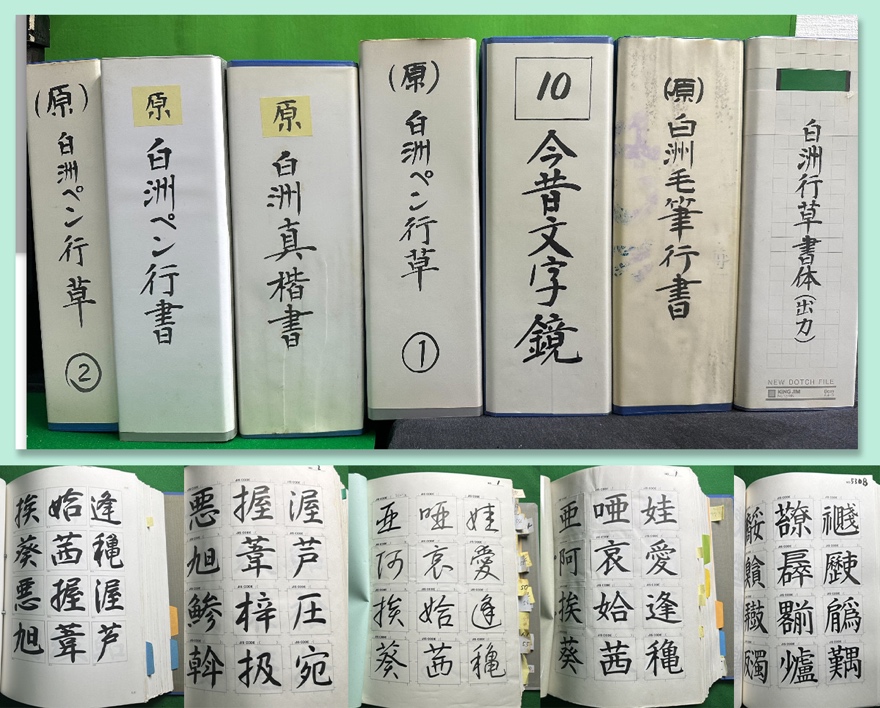 (原)白洲ペン行草②
原
白洲ペン行書
原
白洲真楷書
(原)白洲ペン行草①
10
今昔文字鏡
(原)白洲毛筆行書
白洲行草書体(出力)
NEW DOTCH FILE
KING JIM
挨 姶 逢
葵 茜 穐
悪 握 渥
旭 葦 芦
悪 握 渥
旭 葦 芦
鯵 梓 圧
斡 扱 宛
亜 唖 娃
阿 哀 愛
挨 姶 逢
葵 茜 穐
亜 唖 娃
阿 哀 愛
挨 姶 逢
葵 茜 穐